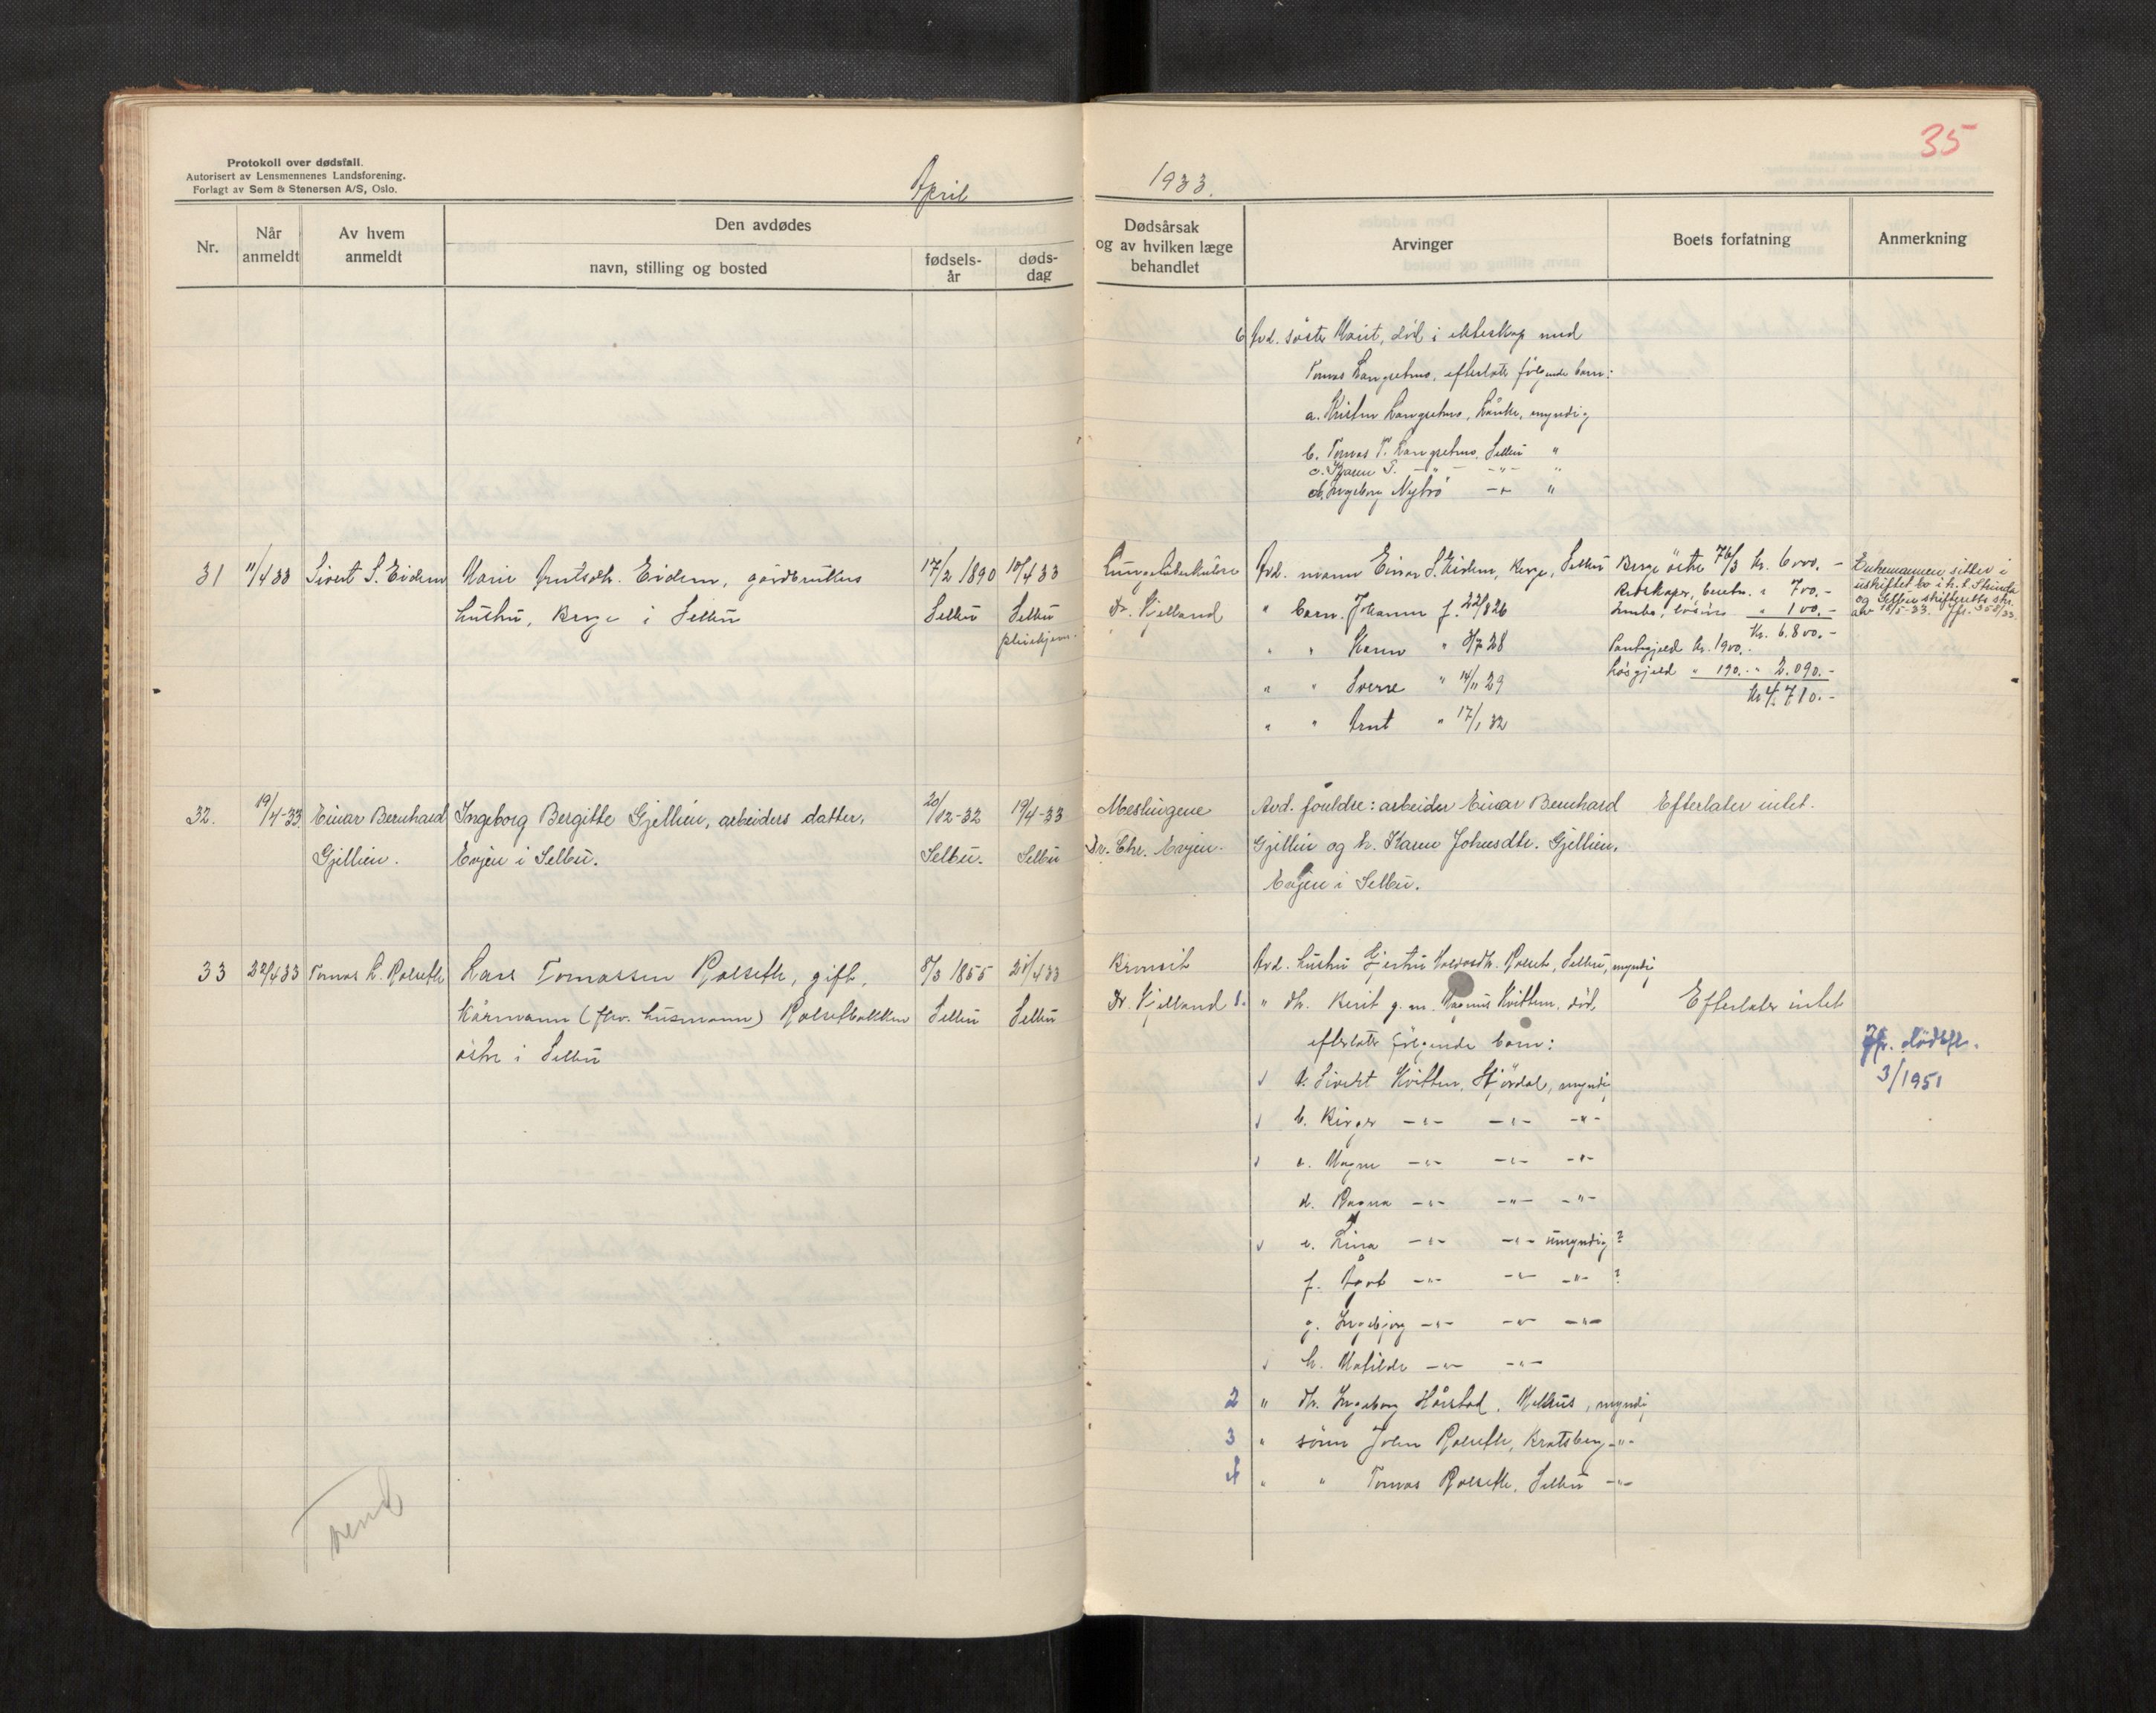 35
Protokoll over dødsfall.
Autorisert av Lensmennenes Landsforening.
Forlagt av Sem & Stenersen A/S, Oslo.
April 1933.
Nr.
Når anmeldt
Av hvem anmeldt
Den avdødes
navn, stilling og bosted
fødsels-år
døds-dag
Dødsårsak og av hvilken læge behandlet
Arvinger
Boets forfatning
Anmerkning
6 Avd. søster Marit, død i ekteskap med
Tomas Langsetmo, efterlater følgende barn:
a. Kristen Langsetmo, Lånke, myndig
b. Tomas T. Langsetmo, Selbu "
c. Karen T. -"- -"- "
d. Ingeborg Nybrö -"- "
31 11/4 33 Sivert S. Eidem Marie Arntsdtr. Eidem, gårdbrukers 17/2 1890 10/4 33
hustru, Berge i Selbu Selbu Selbu
pleiehjem.
Lungetuberkulose
Dr. Kjelland
Avd. mann Einar S. Eidem, Berge, Selbu
" barn Johanna f. 22/8 26
" " Karen " 3/7 28
" " Sverre " 14/11 29
" " Arnt " 17/1 32
Berge östre 76/3 kr. 6000.-
Redskaper, besetn. " 700.-
Innbo, lösöre " 100.-
Kr. 6.800.-
Pantegjeld kr. 1900.-
Lösgjeld " 190.- " 2.090.-
Kr. 4.710.-
Enkemannen sitter i
uskiftet bo i h. t. Strinda
og Selbu skifteretts skr.
av 18/5-33. Jfr. 358/33.
32. 19/4-33 Einar Bernhard Ingeborg Bergitte Gjellien, arbeiders datter, 20/12-32 19/4-33
Gjellien. Evjen i Selbu. Selbu. Selbu
Meslingene
Dr. Chr. Evjen.
Avd. foreldre: arbeider Einar Bernhard
Gjellien og h. Karen Johnsdtr. Gjellien,
Evjen i Selbu.
Efterlater intet.
33 22/4 33 Tomas L. Rolseth Lars Tomassen Rolseth, gift, 8/3 1855 21/4 33
Kårmann (fhv. husmann) Rolsetbakken Selbu Selbu
östre i Selbu
Bronsit
Dr. Kjelland
Avd. hustru Gjertru Halvorsdtr. Rolset, Selbu, myndig
1. " dtr. Berit g. m. Magnus Kvittem, död,
efterlater følgende barn:
a. Sivert Kvittem, Stjördal, myndig
b. Birger -"- -"- -"-
c. Magne -"- -"- -"-
d. Ragna -"- -"- -"-
e. Lina -"- -"- umyndig ?
f. Ågot -"- -"- -"- ?
g. Ingebjørg -"- -"- -"-
h. Matilde -"- -"-
2 " dtr. Ingeborg Hårstad, Melhus, myndig
3 " sönn John Rolseth, Bratsberg -"-
4 " " Tomas Rolseth, Selbu -"-
Efterlater intet
Jfr. dödsfl.
3/1951